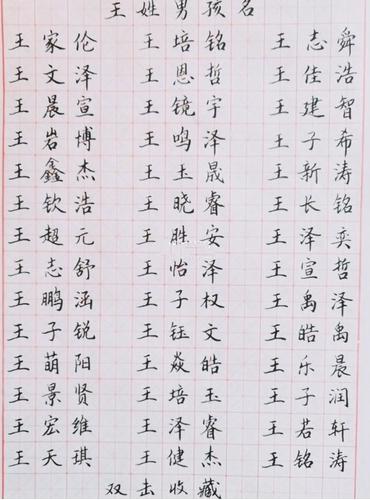 王姓男孩名
王家伦 王培铭 王志舜
王文泽 王恩哲 王佳浩
王晨宣 王镜宇 王建智
王岩博 王鸣泽 王子希
王鑫杰 王玉晟 王新涛
王钦浩 王晓睿 王长铭
王超元 王胜安 王泽奕
王志舒 王怡泽 王宣哲
王鹏涵 王子权 王禹泽
王子锐 王钰文 王皓禹
王萌阳 王焱皓 王乐晨
王景贤 王培玉 王子润
王宏维 王泽睿 王若轩
王天琪 王健杰 王铭涛
双击收藏